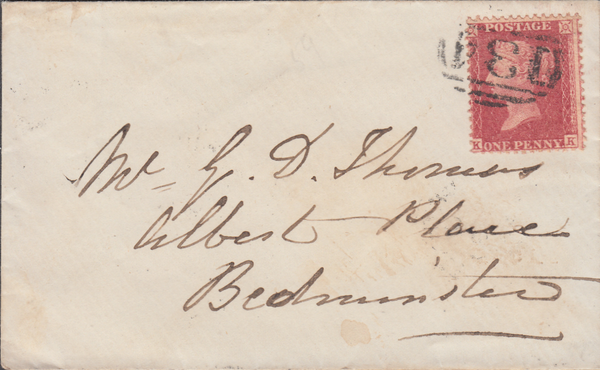 POSTAGE
K ONE PENNY. K
Mr G. D. Thomas
Albert Place
Bedminster